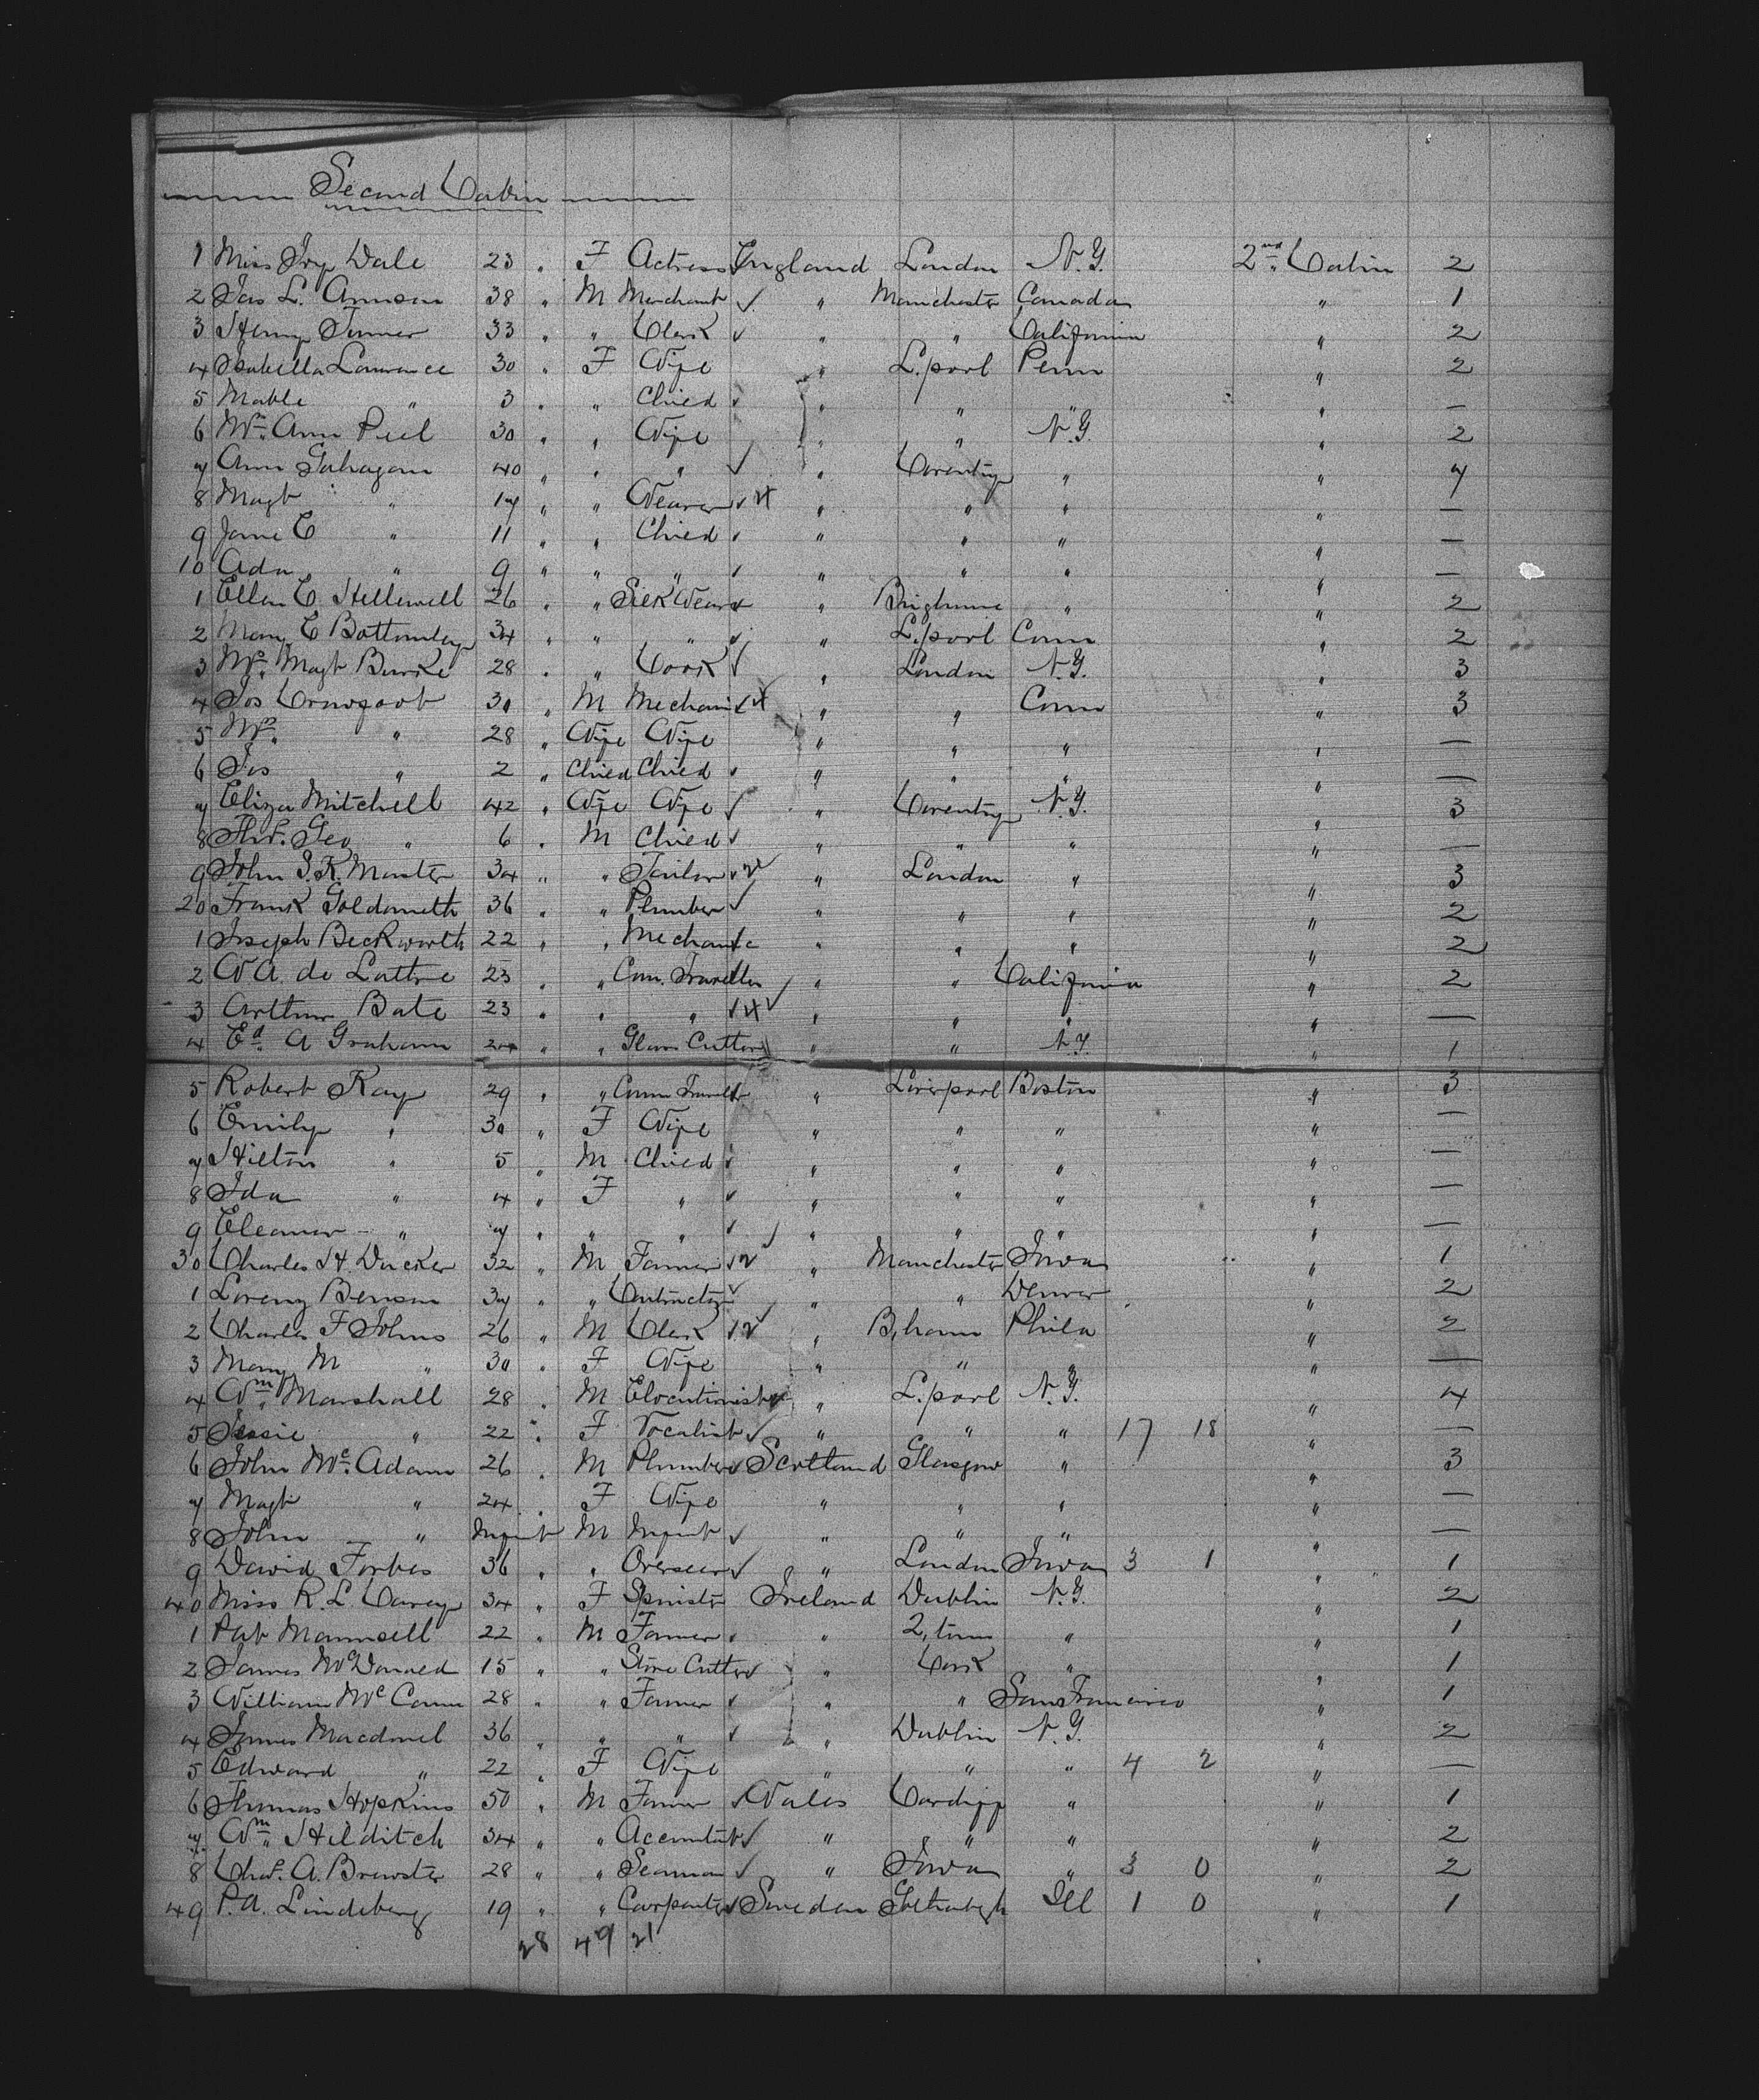 Second Cabin
1 Miss Ivy Dale 23 " F Actress England London N.Y. 2nd Cabin 2
2 Jas L. Annison 38 " M Merchant " Manchester Canada " 1
3 Henry Turner 33 " " Clerk " " California " 2
4 Isabella Lawrance 30 " F Wife " L.pool Penn " 2
5 Mable " 3 " " Child " " " " —
6 Mrs Ann Peel 30 " " Wife " " N.Y. " 2
7 Ann Gahagan 40 " " " " Coventry " " 7
8 Magt " 17 " " Weaver " " " " —
9 Jane E " 11 " " Child " " " " —
10 Ada " 9 " " " " " " " —
1 Ellen E. Hellewell 26 " " Silk Weaver " Brighouse " " 2
2 Mary E Bottomley 34 " " " " L.pool Conn " 2
3 Mrs Magt Burke 28 " " Cook " London N.Y. " 3
4 Jos Crowfoot 30 " M Mechanic " " Conn " 3
5 Mrs " 28 " Wife Wife " " " " —
6 Jos " 2 " Child Child " " " " —
7 Eliza Mitchell 42 " Wife Wife " Coventry N.Y. " 3
8 Thos. Geo " 6 " M Child " " " " —
9 John S. K. Master 34 " " Tailor " London " " 3
20 Frank Goldsmith 36 " " Plumber " " " " 2
1 Joseph Beckworth 22 " " Mechanic " " " " 2
2 W A. de Lattre 23 " " Com. Traveller " " California " 2
3 Arthur Bate 23 " " " " " " " —
4 Ed. A Graham 24 " " Glass Cutter " " N.Y. " 1
5 Robert Kay 29 " " Comm Traveller " Liverpool Boston " 3
6 Emily " 30 " F Wife " " " " —
7 Hilton " 5 " M Child " " " " —
8 Ida " 4 " F " " " " " —
9 Eleanor " 7 " " " " " " " —
30 Charles H. Ducker 32 " M Farmer " Manchester Iowa " 1
1 Lorenz Benson 37 " " Contractor " " Denver " 2
2 Charles F Johns 26 " M Clerk " B,ham Phila " 2
3 Mary M " 30 " F Wife " " " " —
4 Wm Marshall 28 " M Elocutionist " L.pool N.Y. " 4
5 Jessie " 22 " F Vocalist " " " 17 18 " —
6 John McAdam 26 " M Plumber Scotland Glasgow " " 3
7 Magt " 24 " F Wife " " " " —
8 John " Infant M Infant " " " " —
9 David Forbes 36 " " Overseer " London Iowa 3 1 " 1
40 Miss R. L. Carey 34 " F Spinster Ireland Dublin N.Y. " 2
1 Pat Maunsell 22 " M Farmer " Q,town " " 1
2 James McDonald 15 " " Stone Cutter " Cork " " 1
3 William McCann 28 " " Farmer " " San Francisco " 1
4 James Macdonel 36 " " " " Dublin N.Y. " 2
5 Edward " 22 " F Wife " " " 4 2 " —
6 Thomas Hopkins 50 " M Farmer Wales Cardiff " " 1
7 Wm Hilditch 34 " " Accountant " " " " 2
8 Chas. A. Brewster 28 " " Seaman " Iowa " 3 0 " 2
49 P. A. Lindeberg 19 " " Carpenter Sweden Ill 1 0 " 1
28 49 21